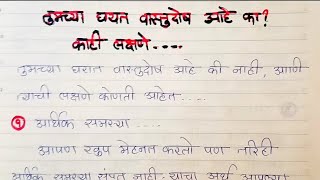 तुमच्या घरात वास्तुदोष आहे का?
काही लक्षणे....
तुमच्या घरात वास्तुदोष आहे की नाही, आणि
त्याची लक्षणे कोणती आहेत.....
१ आर्थिक समस्या....
आपण खूप मेहनत करतो पण तरिही
आर्थिक समस्या संपत नाही. याचा अर्थ आपल्या